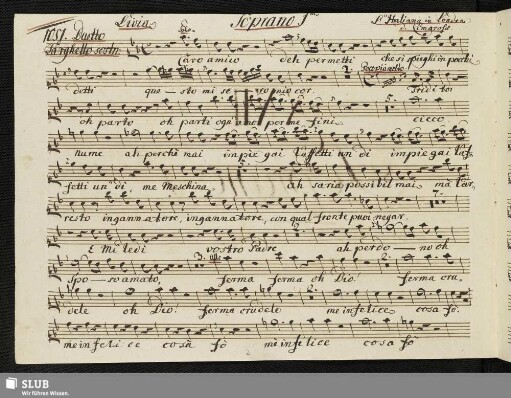 Livia Soprano I L'Italiana in Londra
N. 51. Duetto di Cimarosa
Larghetto sosten.
Caro amico deh permetti che si spieghi in pochi
Scipionello
detti questo mi sero mio cor.
oh parto oh parti ogni per me fini. cieco
nume ah perchè mai impiegai l'affetti un dì impiegai l'af
fetti un dì. me Meschina ah saria possibil mai ma l'ar
resto ingannatore, ingannatore, con qual fronte puoi negar.
E Miledi vostro Padre ah perdono oh
Sposo amato, ferma ferma oh Dio. ferma cru
dele oh Dio. ferma crudele me infelice cosa fò.
me infelice cosa fò me infelice cosa fò
SLUB
Wir führen Wissen.